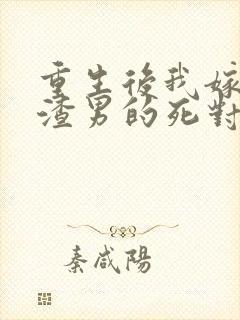 重生後我嫁
渣男的死對
秦咸陽